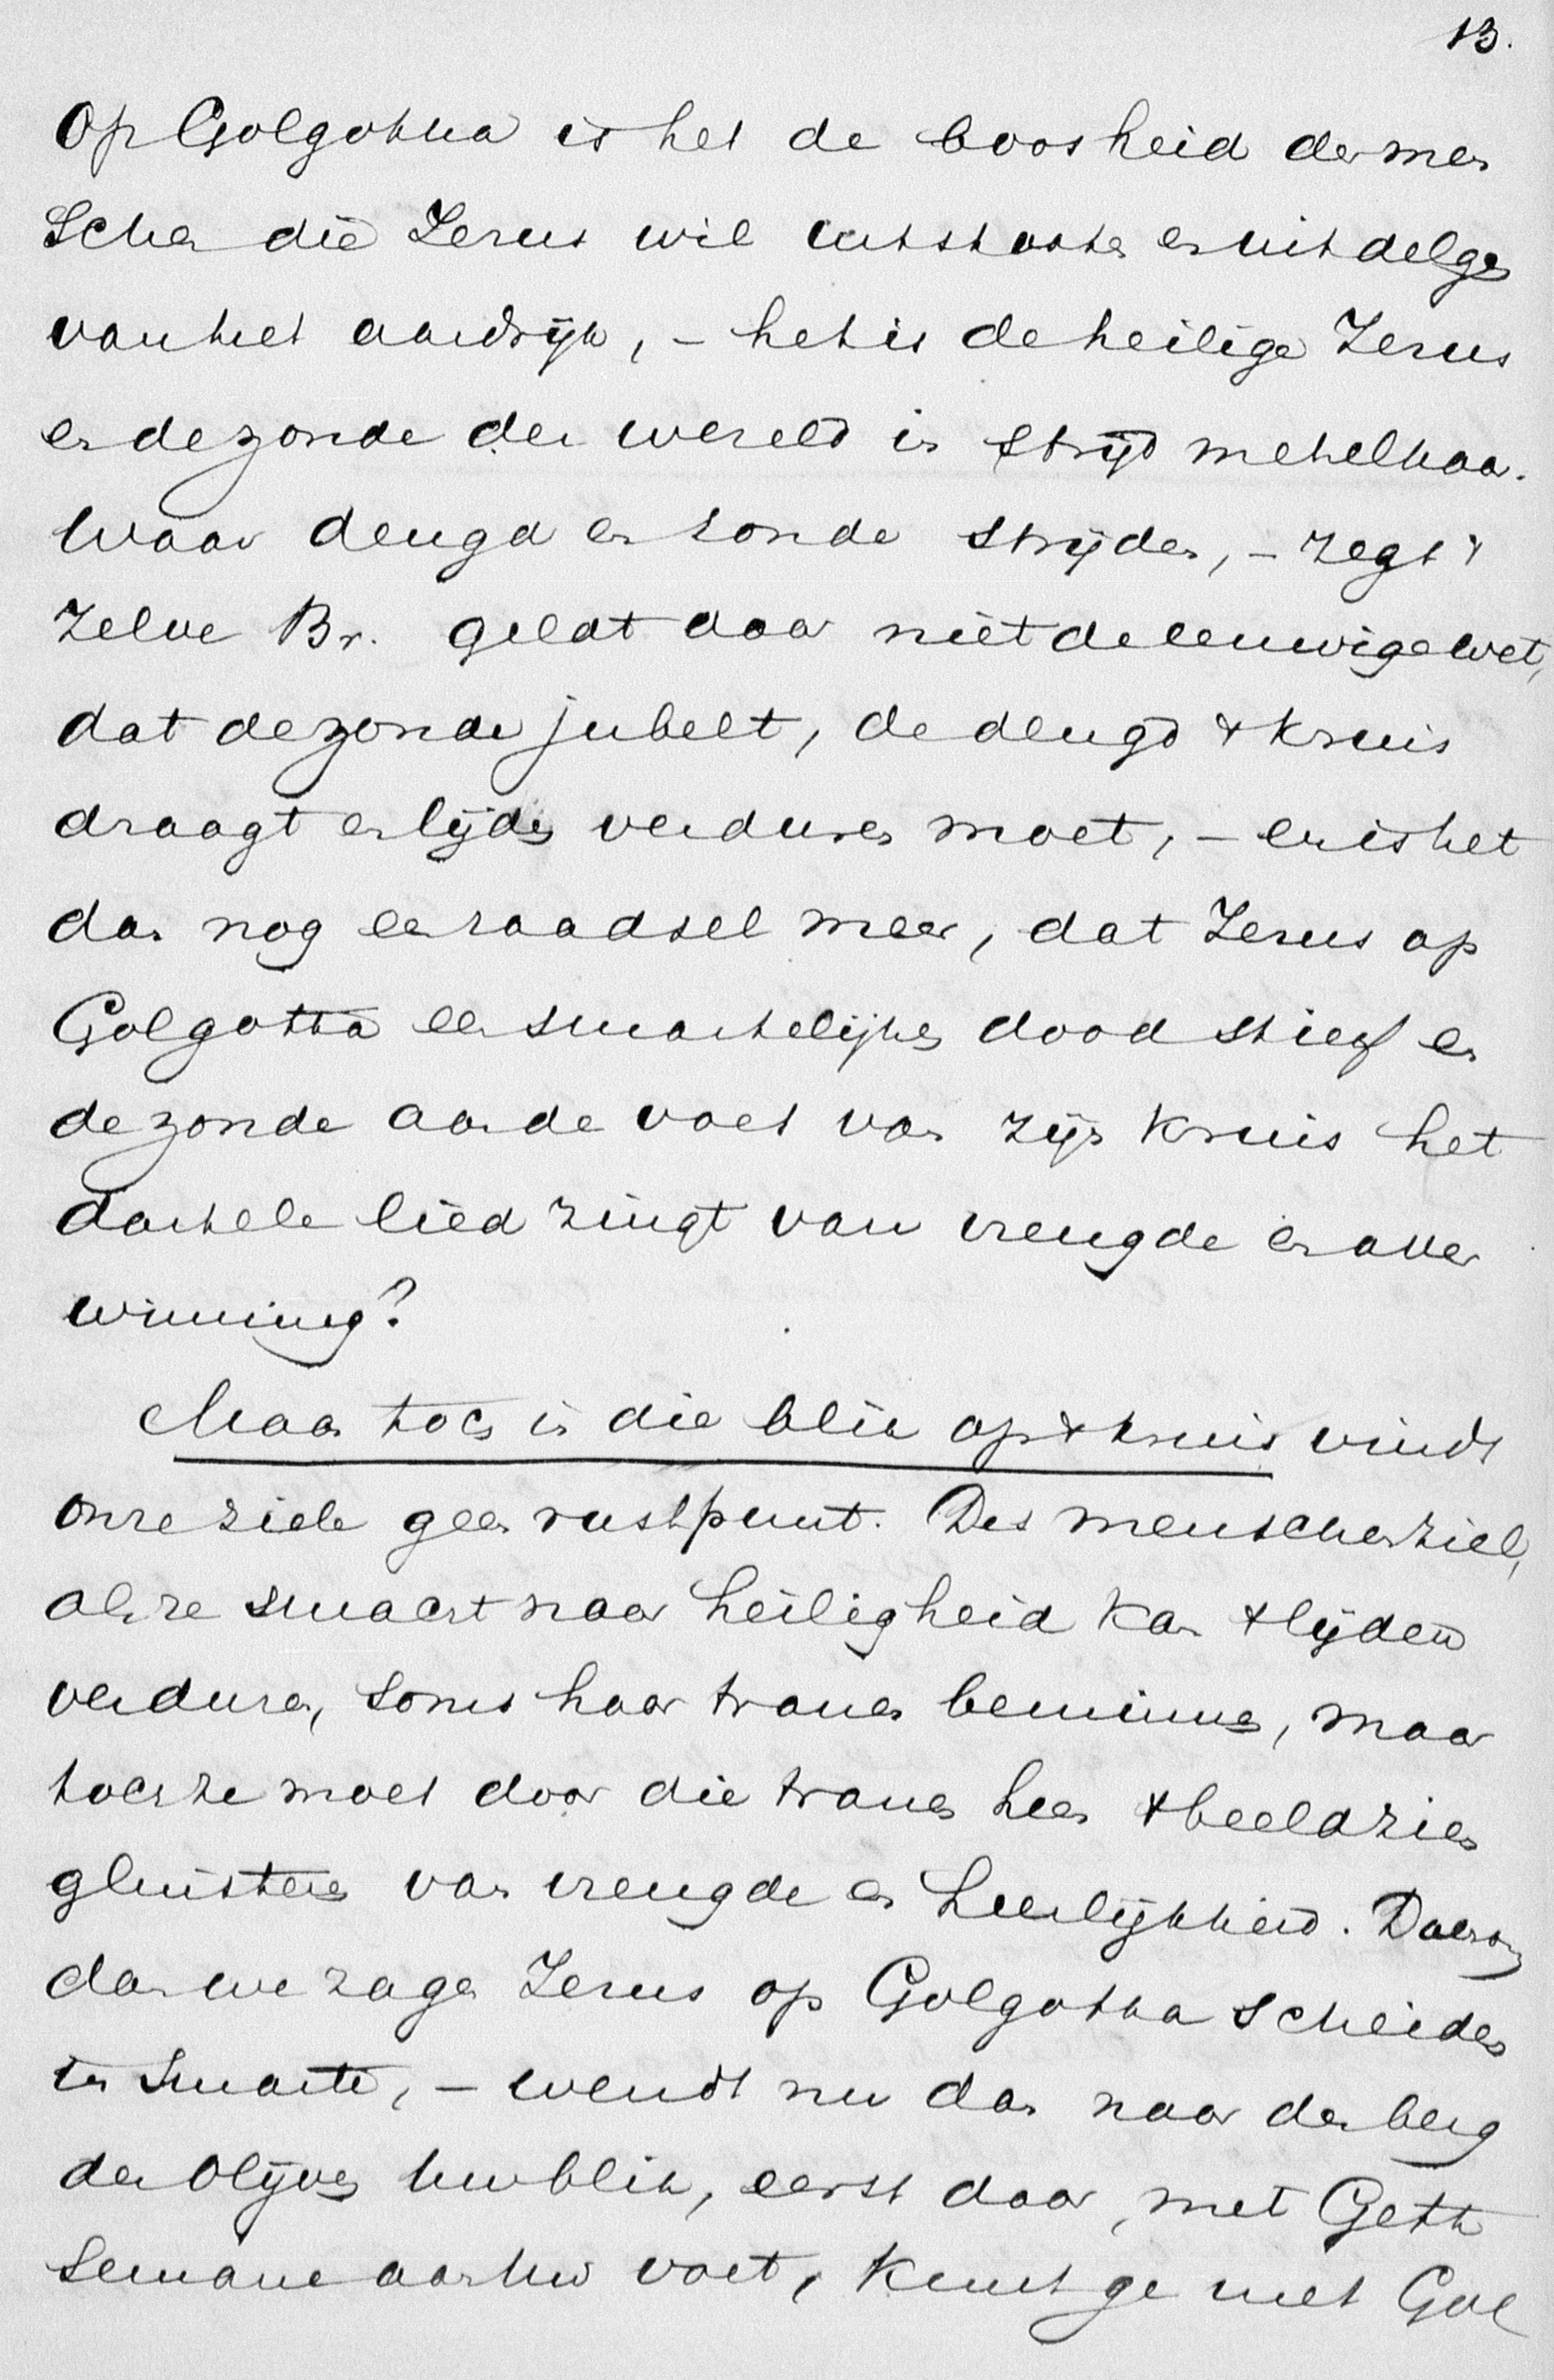 13.
Op Golgotha is het de boosheid der men
schen die Jezus wil uitstooten en uitdelgen
van het aardrijk, – het is de heilige Jezus
en de zonde der wereld in strijd met elkaar.
Waar deugd en zonde strijden, – zegt 't
zelve Br. geldt daar niet de eeuwige wet,
dat de zonde jubelt, de deugd 't kruis
draagt en lijden verduren moet, – en is het
dan nog een raadsel meer, dat Jezus op
Golgotha een smartelijken dood stierf en
de zonde aan de voet van zijn kruis het
dartele lied zingt van vreugde en over
winning?
Maar toch in die blik op 't kruis vindt
onze ziele geen rustpunt. Des menschen ziel,
als ze smacht naar heiligheid kan 't lijden
verduren, soms haar tranen beminnen, maar
toch ze moet door die tranen heen 't beeld zien
glinsteren van vreugde en heerlijkheid. Daarom
dan we zagen Jezus op Golgotha scheiden
in smarte, – wendt nu dan naar den berg
der Olijven Uw blik, eerst daar, met Geth
semane aan Uw voet, kunt ge met Gol